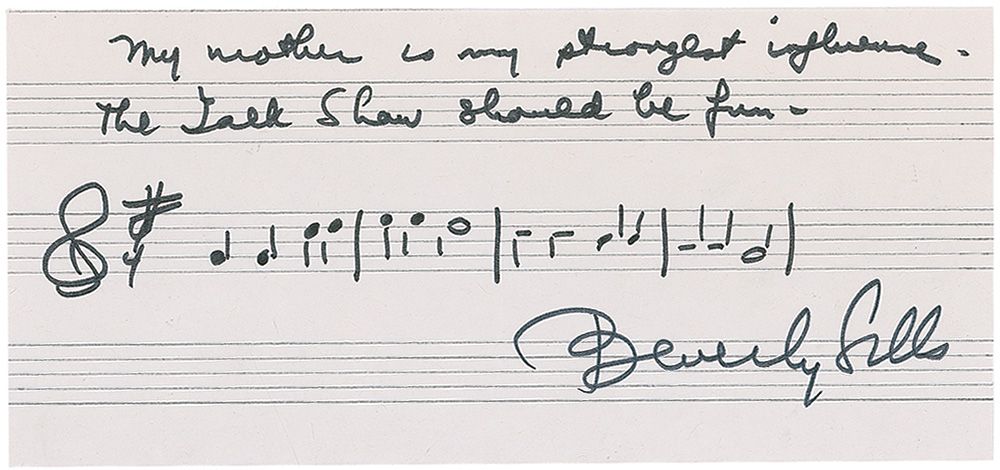 My mother is my strongest influence.
The Talk Show should be fun -
4
Beverly Sills